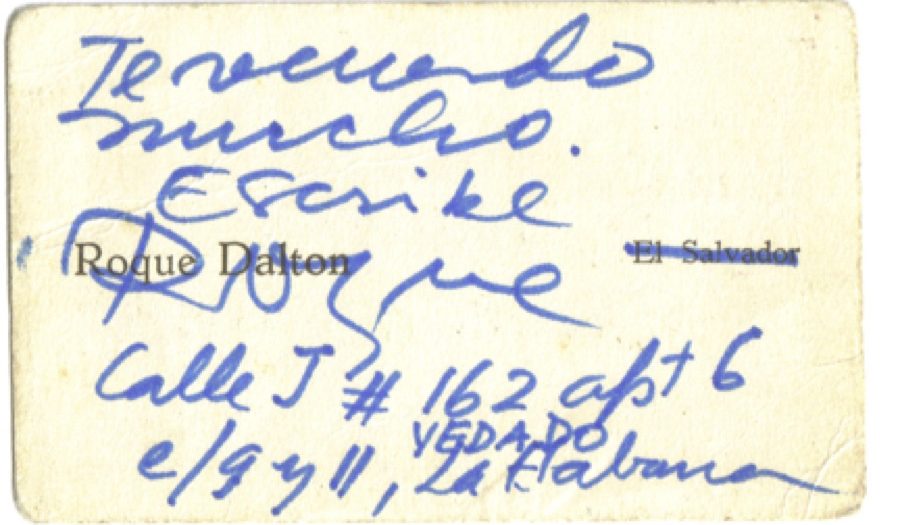 Te recuerdo
mucho.
Escribe
Roque Dalton El Salvador
Roque
Calle J # 162 apt 6
VEDADO
e/9 y 11, La Habana